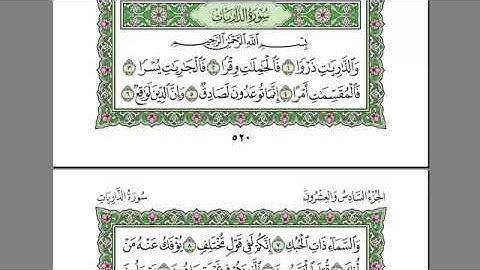 سُورَةُ الذَّارِيَاتِ
بِسْمِ اللَّهِ الرَّحْمَٰنِ الرَّحِيمِ
وَالذَّارِيَاتِ ذَرْوًا ١ فَالْحَامِلَاتِ وِقْرًا ٢ فَالْجَارِيَاتِ يُسْرًا ٣
فَالْمُقَسِّمَاتِ أَمْرًا ٤ إِنَّمَا تُوعَدُونَ لَصَادِقٌ ٥ وَإِنَّ الدِّينَ لَوَاقِعٌ ٦
٥٢٠
الجُزْءُ السَّادِسُ وَالعِشْرُونَ سُورَةُ الذَّارِيَاتِ
وَالسَّمَاءِ ذَاتِ الْحُبُكِ ٧ إِنَّكُمْ لَفِي قَوْلٍ مُّخْتَلِفٍ ٨ يُؤْفَكُ عَنْهُ مَنْ